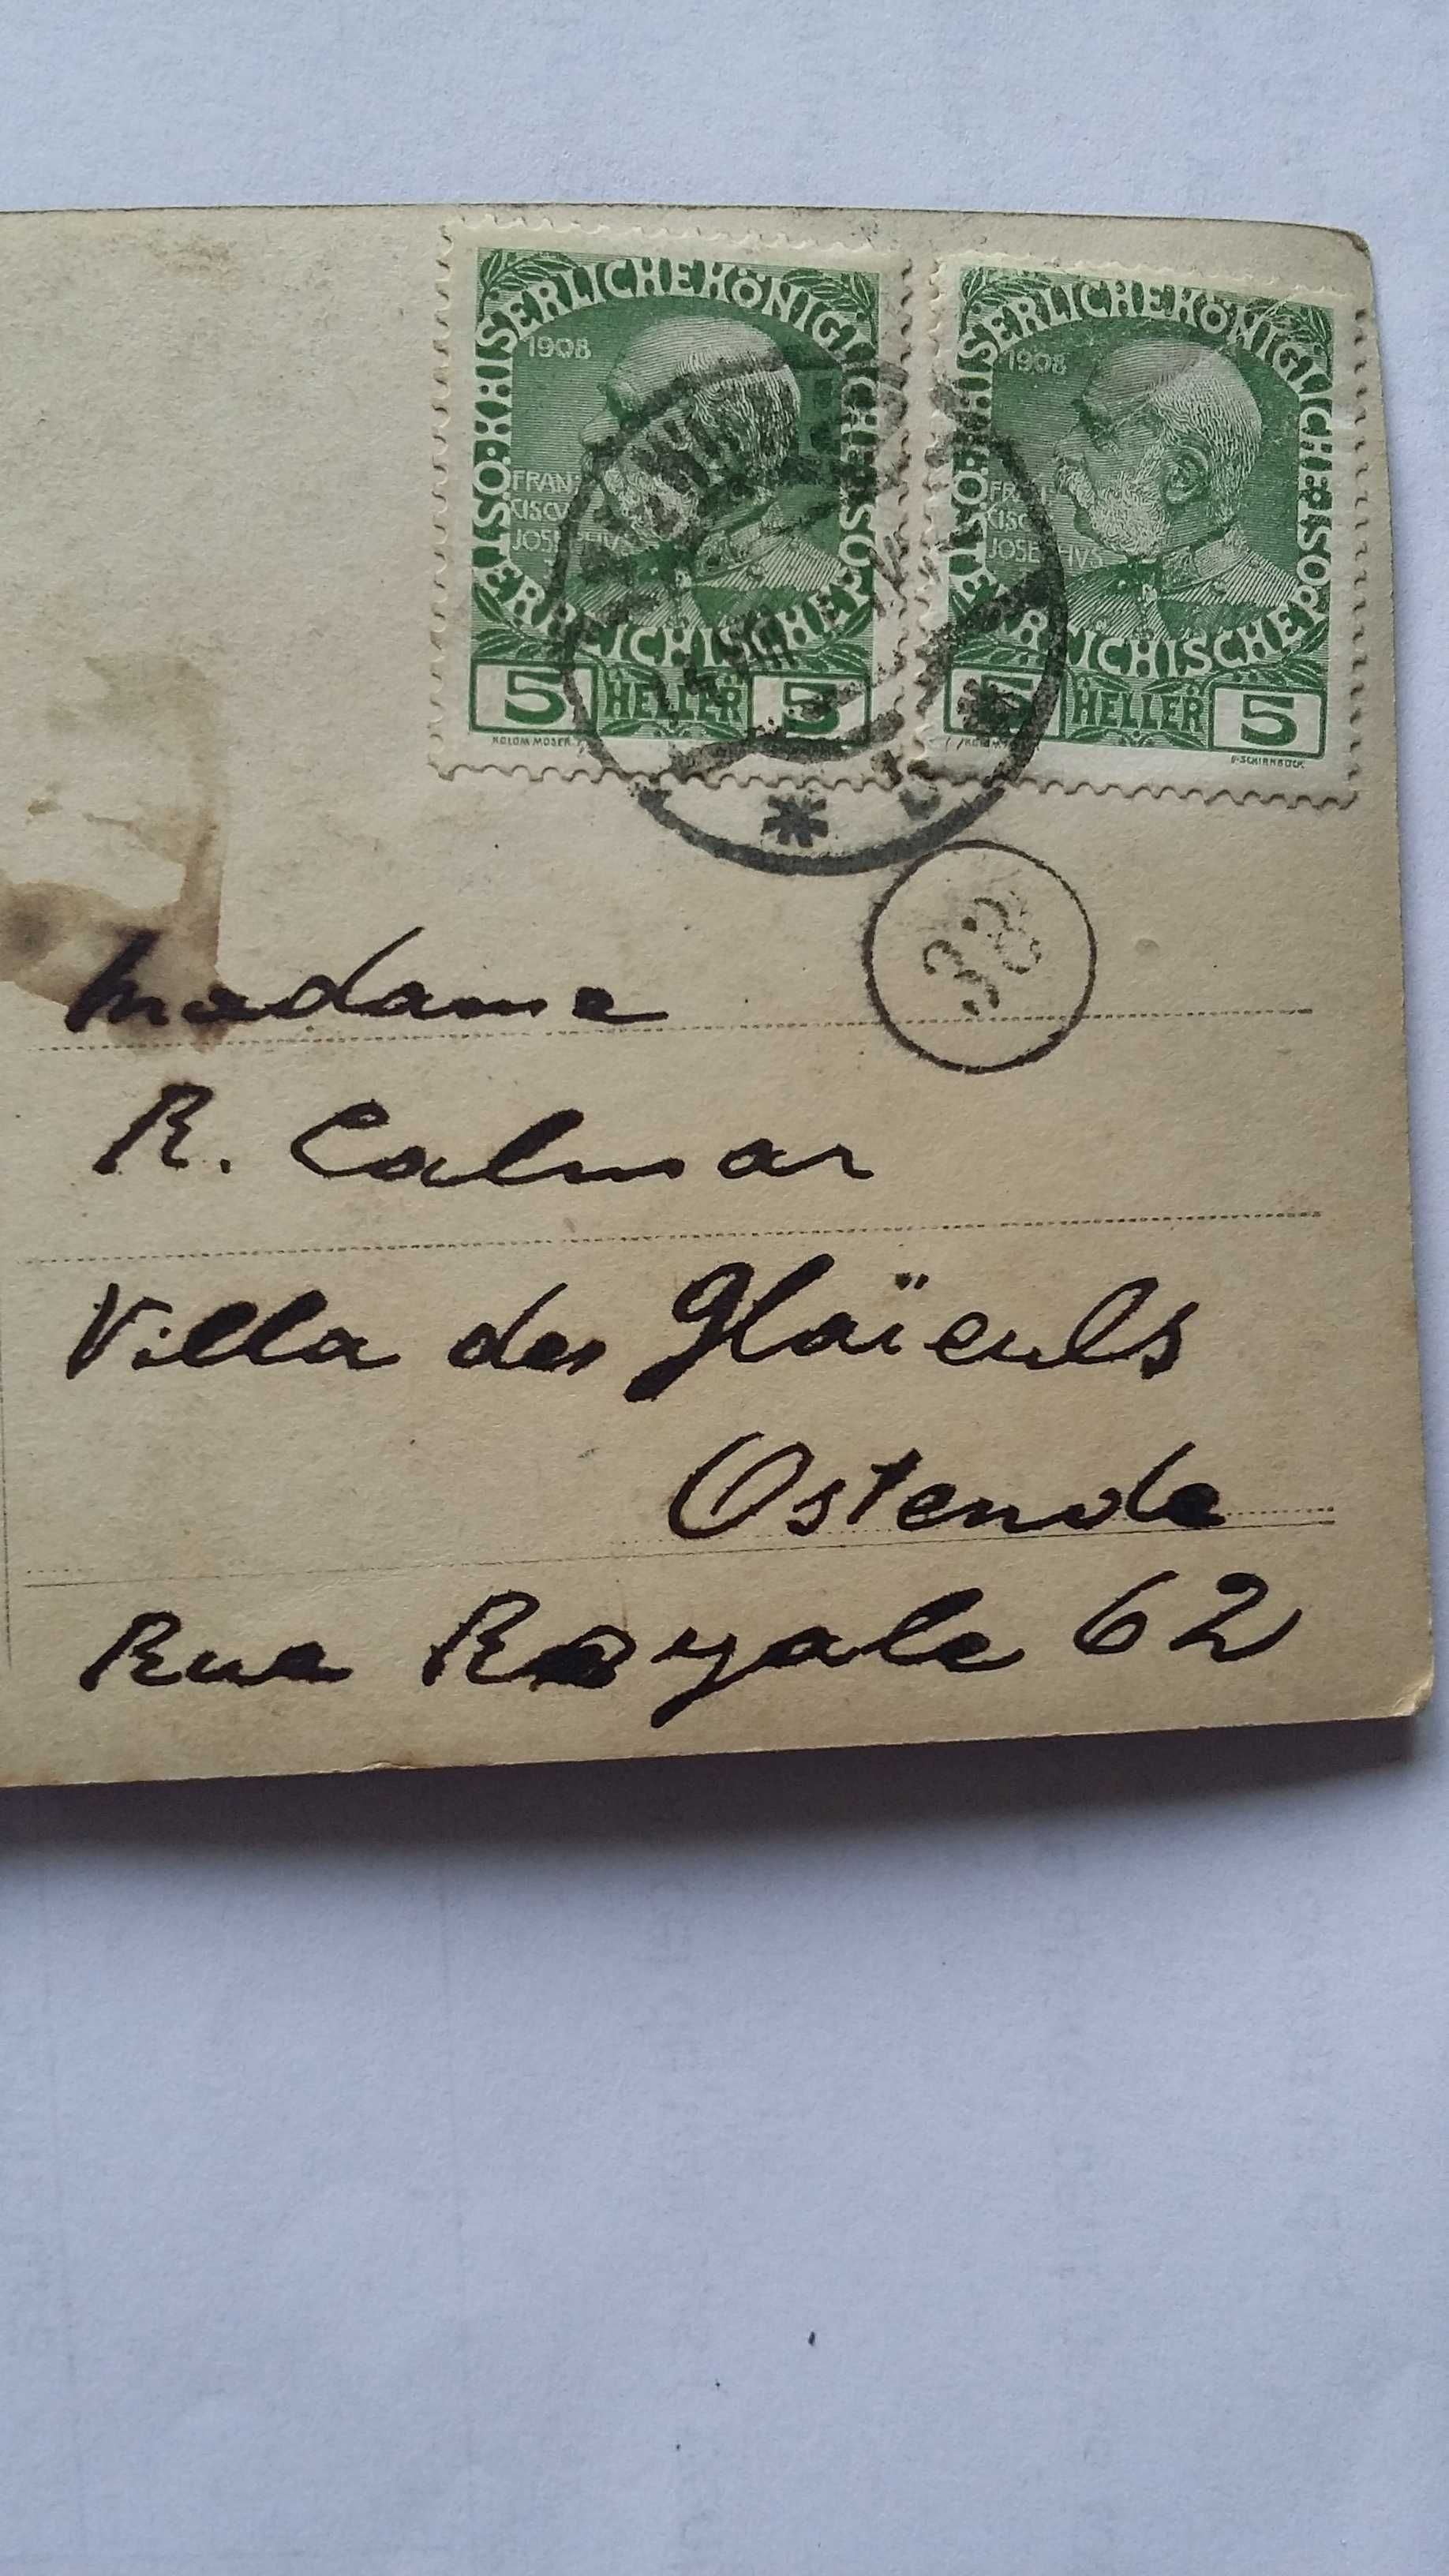 KAISERLICHE KÖNIGLICHE ÖSTERREICHISCHE POST
1908
FRAN
CISCVS
JOSEPHVS
5 HELLER 5
KOLOM. MOSER
KAISERLICHE KÖNIGLICHE ÖSTERREICHISCHE POST
1908
FRAN
CISC
JOSEPHVS
5 HELLER 5
F. SCHIRNBÖCK
Madame
R. Calmar
Villa des Glaïeuls
Ostende
Rue Royale 62